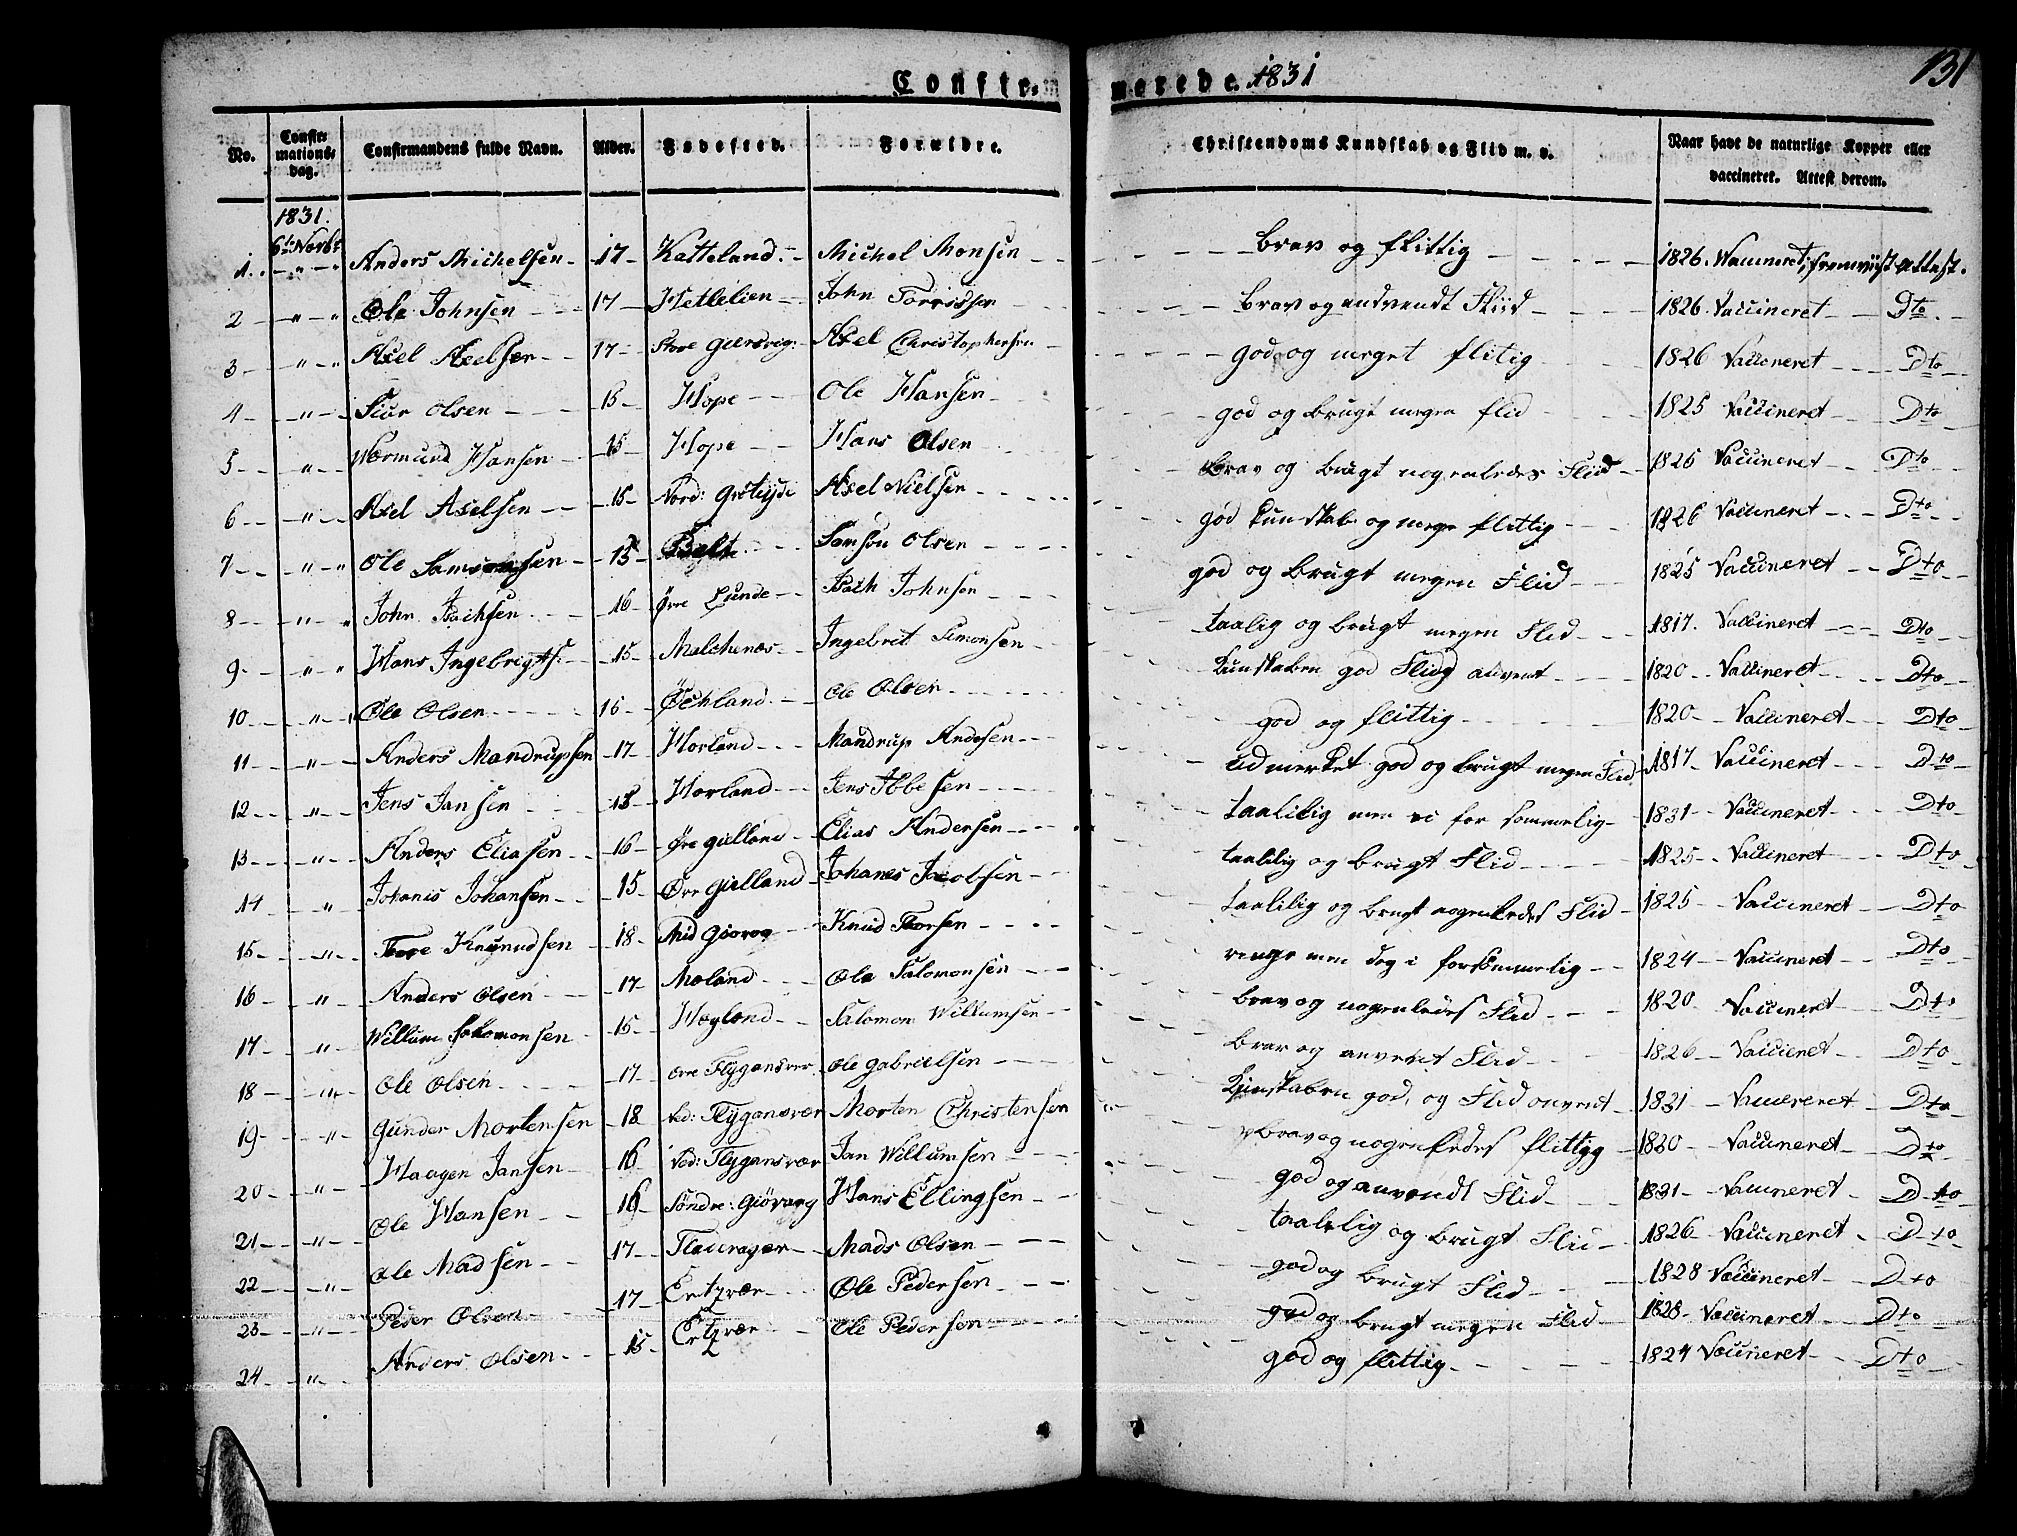 Confirmerede. 1831
131
No. Confirmationsdag. Confirmandens fulde Navn. Alder. Fødested. Forældre. Christendoms Kundskab og Flid m. v. Naar havt de naturlige Kopper eller vaccineret. Attest derom.
1831.
6te Novbr
1. Anders Michelsen 17 Katteland Michel Monsen Brav og flittig 1826. Vaccineret, fremvist Attest.
2 " Ole Johnsen 17 Hetlelien John Torrissen Brav og andvendt Fliid 1826. Vaccineret Dto
3 " Axel Axelsen 17 Store Giersvig: Axel Christophersen god og meget flitig 1826 Vaccineret Dto
4 " Siur Olsen 15 Hope Ole Hansen god og brugt megen flid 1825 Vaccineret Dto
5 " Wermund Hansen 15 Hope Hans Olsen Brav og brugt nogenledes Fliid 1826 Vaccineret Dto
6 " Axel Axelsen 15 Nord: Axel Nielsen god Kunskab og meget flittig 1826 Vaccineret Dto
7 " Ole Samsonsen 15 Samson Olsen god og brugt megen Flid 1825 Vaccineret Dto
8 " John 16 Øvre Lunde Johnsen taalig og brugt megen Flid 1817. Vaccineret Dto
9 " Hans Ingebrigts: 15 Malchenæs Ingebrit Simonsen Kunskaben god Flidg anvent 1820 Vaccineret Dto
10 " Ole Olsen 16 Øchland Ole Olsen god og flittig 1820 Vaccineret Dto
11 " Anders Mandrupsen 17 Horland Mandrup Andersen Udmerket god og brugt megen Flid 1817 Vaccineret Dto
12 " Jens Jansen Horland Jens Ibbesen taalilig men forsommelig 1831 Vaccineret Dto
13 " Anders Eliasen 16 Øvre Gielland Elias Andersen taalilig og brugt Flid 1825 Vaccineret Dto
14 " Johanis Johansen 15 Øvre Gielland Johanes Jacobsen taalilig og brugt nogenledes Flid 1825 Vaccineret Dto
15 " Tore Knudsen 18 Mid Giøvog Knud Torsen ringe men dog i forsømmelig 1824 Vaccineret Dto
16 " Anders Olsen 17 Moland Ole Salomonsen brav og nogenledes Flid 1820 Vaccineret Dto
17 " Willum Salomonsen 15 Høgland Salomon Willumsen Brav og anvendt Flid 1826 Vaccineret Dto
18 " Ole Olsen 17 Øvre Flygansvær Ole Gabrielsen Kunskaben god, og Flid anvent 1831 Vaccineret Dto
19 " Gunder Mortensen 18 Ned: Flygansvær Morten Christensen brav og nogenledes flittig 1820 Vaccineret Dto
20 " Haagen Jansen 16 Ned: Flygansvær Jan Willumsen god og anvendt Flid 1831 Vaccineret Dto
21 " Ole Hansen 16 Søndre: Giøvaag Hans Ellingsen taalelig og brugt Flid 1826 Vaccineret Dto
22 " Ole Madsen 17 Flaccrager Mads Olsen god og brugt Flid 1828 Vaccineret Dto
23 " Peder Olsen 17 Ertzvær Ole Pedersen god og brugt megen Flid 1828 Vaccineret Dto
24 " Anders Olsen 15 Ertzvær Ole Pedersen god og flittig 1824 Vaccineret Dto